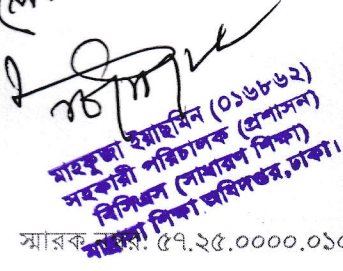 মাহফুজা ইয়াছমিন (০১৬৮৬২)
সহকারী পরিচালক (প্রশাসন)
বিসিএস (সাধারণ শিক্ষা)
মাদ্রাসা শিক্ষা অধিদপ্তর, ঢাকা।
স্মারক নম্বর: ৫৭.২৫.০০০০.০১০